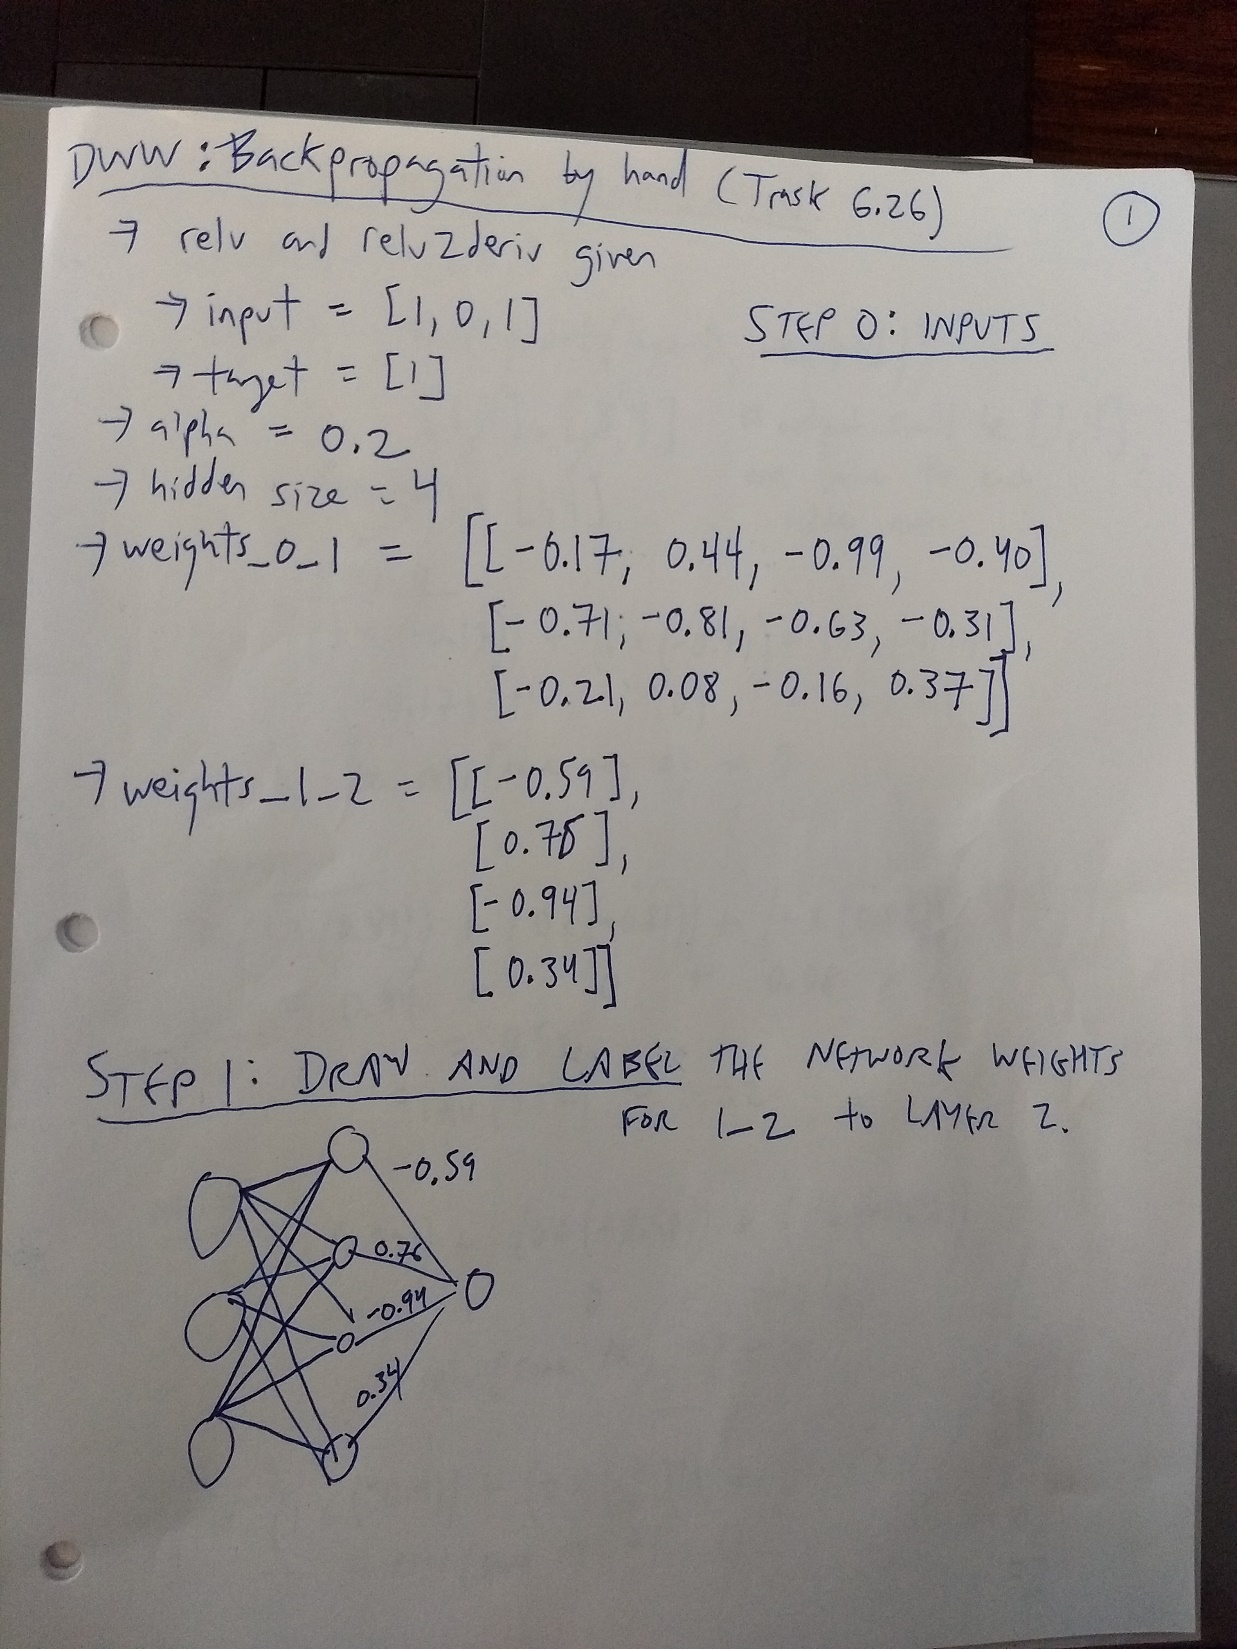 DWW: Backpropagation by hand (Trask 6.26)
1
→ relu and relu2deriv given
→ input = [1, 0, 1]
STEP 0: INPUTS
→ target = [1]
→ alpha = 0.2
→ hidden size = 4
→ weights_0_1 = [[-0.17, 0.44, -0.99, -0.40],
[-0.71, -0.81, -0.63, -0.31],
[-0.21, 0.08, -0.16, 0.37]]
→ weights_1_2 = [[-0.59],
[0.76],
[-0.94],
[0.34]]
STEP 1: DRAW AND LABEL THE NETWORK WEIGHTS
FOR 1_2 to LAYER 2.
-0.59
0.76
-0.94
0.34